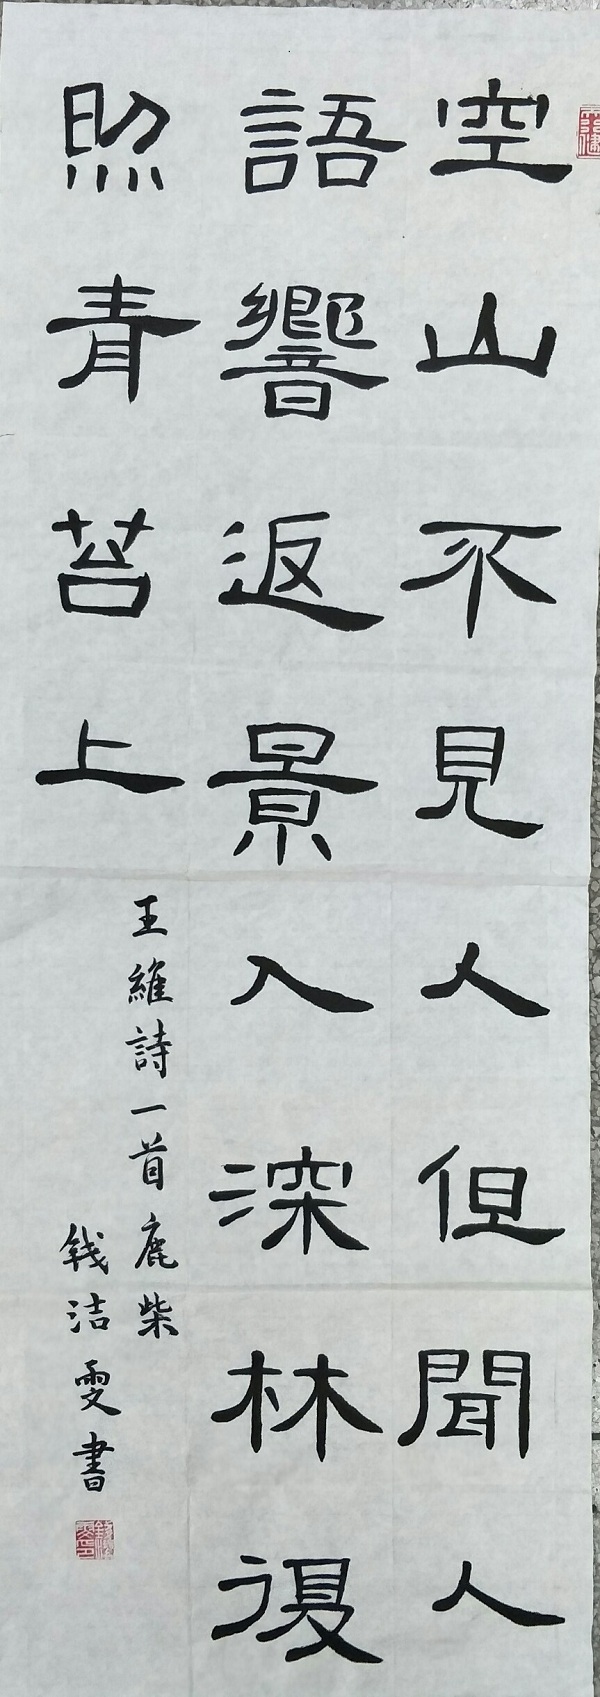 空山不見人但聞人
語響返景入深林復
照青苔上
王維詩一首鹿柴
錢洁雯書